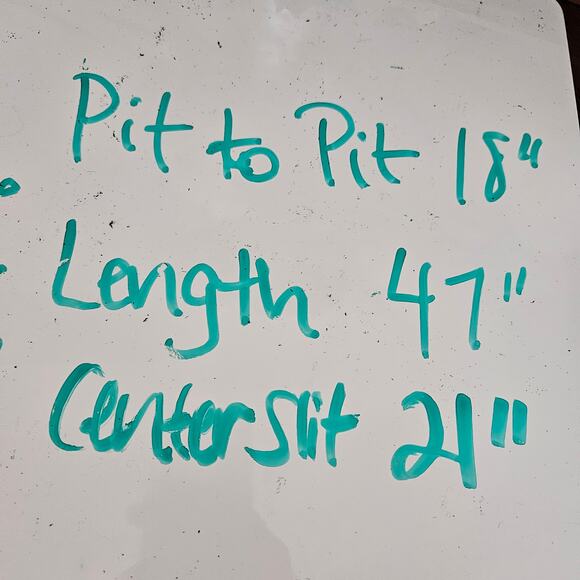 Pit to Pit 18"
Length 47"
Center Slit 21"